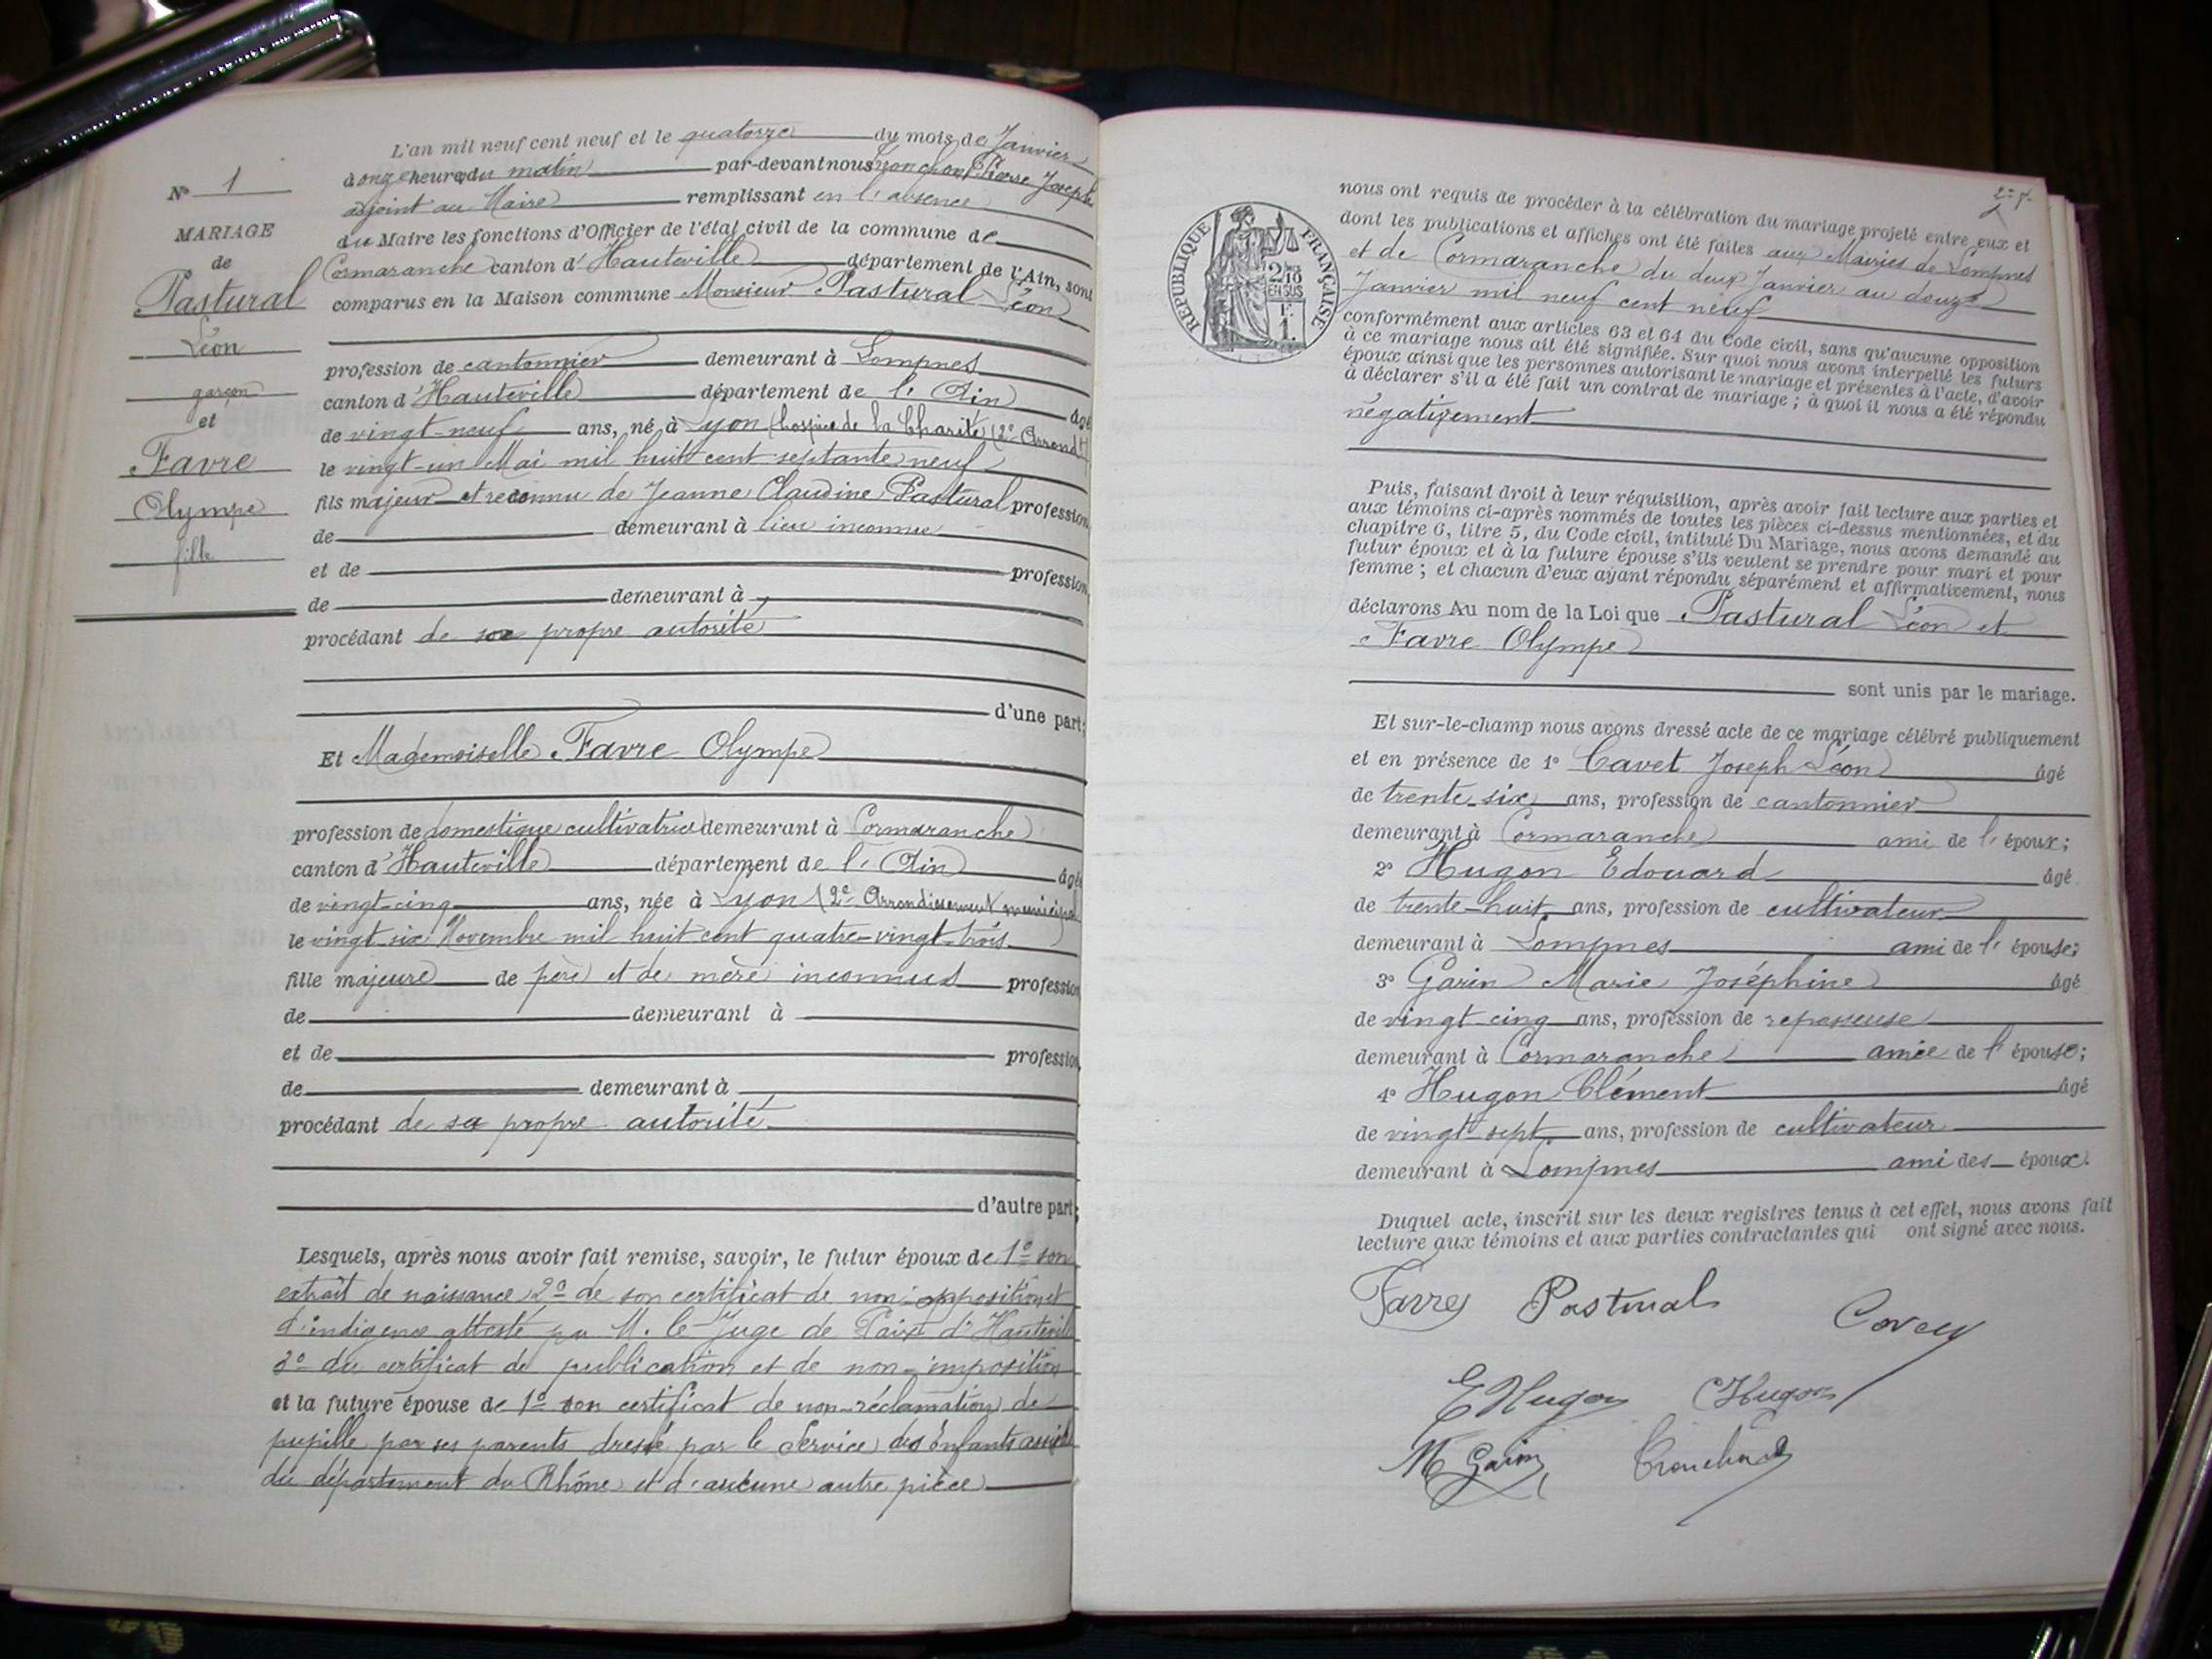 L'an mil neuf cent neuf et le quatorze du mois de Janvier
à onze heures du matin par-devant nous Pierre Joseph
adjoint au Maire remplissant en l'absence
du Maire les fonctions d'Officier de l'état civil de la commune de
Cormaranche canton d'Hauteville département de l'Ain, sont
comparus en la Maison commune Monsieur Pastural Léon
profession de cantonnier demeurant à Lompnes
canton d'Hauteville département de l'Ain âgé
de vingt-neuf ans, né à Lyon (hospice de la Charité (2e Arrondt)
le vingt-un Mai mil huit cent septante neuf
fils majeur et reconnu de Jeanne Claudine Pastural profession
de demeurant à lieu inconnu
et de profession
de demeurant à
procédant de sa propre autorité
d'une part;
Et Mademoiselle Favre Olympe
profession de domestique cultivatrice demeurant à Cormaranche
canton d'Hauteville département de l'Ain âgée
de vingt-cinq ans, née à Lyon (2e Arrondissement municipal)
le vingt six Novembre mil huit cent quatre-vingt-trois
fille majeure de père et de mère inconnus profession
de demeurant à
et de profession
de demeurant à
procédant de sa propre autorité
d'autre part;
Lesquels, après nous avoir fait remise, savoir, le futur époux de 1º son
extrait de naissance 2º de son certificat de non-opposition et
d'indigence attesté par M. le Juge de Paix d'Hauteville
3º du certificat de publication et de non-imposition
et la future épouse de 1º son certificat de non-réclamation de
pupille par ses parents dressé par le Service des Enfants assistés
du département du Rhône et d'aucune autre pièce
Nº 1
MARIAGE
de
Pastural
Léon
garçon
et
Favre
Olympe
fille
RÉPUBLIQUE FRANÇAISE
2/10 EN SUS
1F.
nous ont requis de procéder à la célébration du mariage projeté entre eux et
dont les publications et affiches ont été faites aux Mairies de Lompnes
et de Cormaranche du deux Janvier au douze
Janvier mil neuf cent neuf
conformément aux articles 63 et 64 du Code civil, sans qu'aucune opposition
à ce mariage nous ait été signifiée. Sur quoi nous avons interpellé les futurs
époux ainsi que les personnes autorisant le mariage et présentes à l'acte, d'avoir
à déclarer s'il a été fait un contrat de mariage; à quoi il nous a été répondu
négativement
Puis, faisant droit à leur réquisition, après avoir fait lecture aux parties et
aux témoins ci-après nommés de toutes les pièces ci-dessus mentionnées, et du
chapitre 6, titre 5, du Code civil, intitulé Du Mariage, nous avons demandé au
futur époux et à la future épouse s'ils veulent se prendre pour mari et pour
femme; et chacun d'eux ayant répondu séparément et affirmativement, nous
déclarons Au nom de la Loi que Pastural Léon et
Favre Olympe
sont unis par le mariage.
Et sur-le-champ nous avons dressé acte de ce mariage célébré publiquement
et en présence de 1º Cavet Joseph Léon âgé
de trente six ans, profession de cantonnier
demeurant à Cormaranche ami de l'époux;
2º Hugon Edouard âgé
de trente-huit ans, profession de cultivateur
demeurant à Lompnes ami de l'épouse;
3º Garin Marie Joséphine âgé
de vingt cinq ans, profession de repasseuse
demeurant à Cormaranche amie de l'épouse;
4º Hugon Clément âgé
de vingt sept ans, profession de cultivateur
demeurant à Lompnes ami des époux.
Duquel acte, inscrit sur les deux registres tenus à cet effet, nous avons fait
lecture aux témoins et aux parties contractantes qui ont signé avec nous.
Favre Pastural
E Hugon C Hugon
M Garin